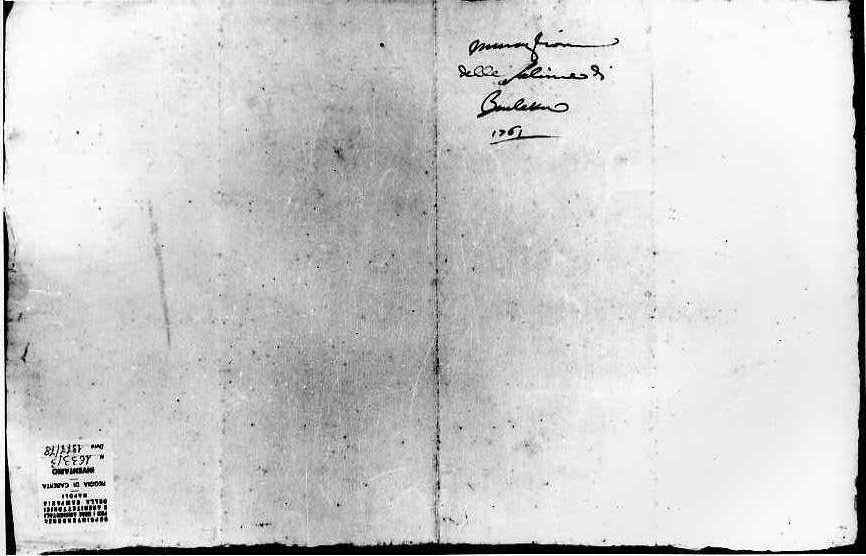 delle Saline di
Barletta
1761
SOPRINTENDENZA
PER I BENI AMBIENTALI
E ARCHITETTONICI
DELLA CAMPANIA
NAPOLI
REGGIA DI CASERTA
INVENTARIO
N. 1633/3
Data 1977/78